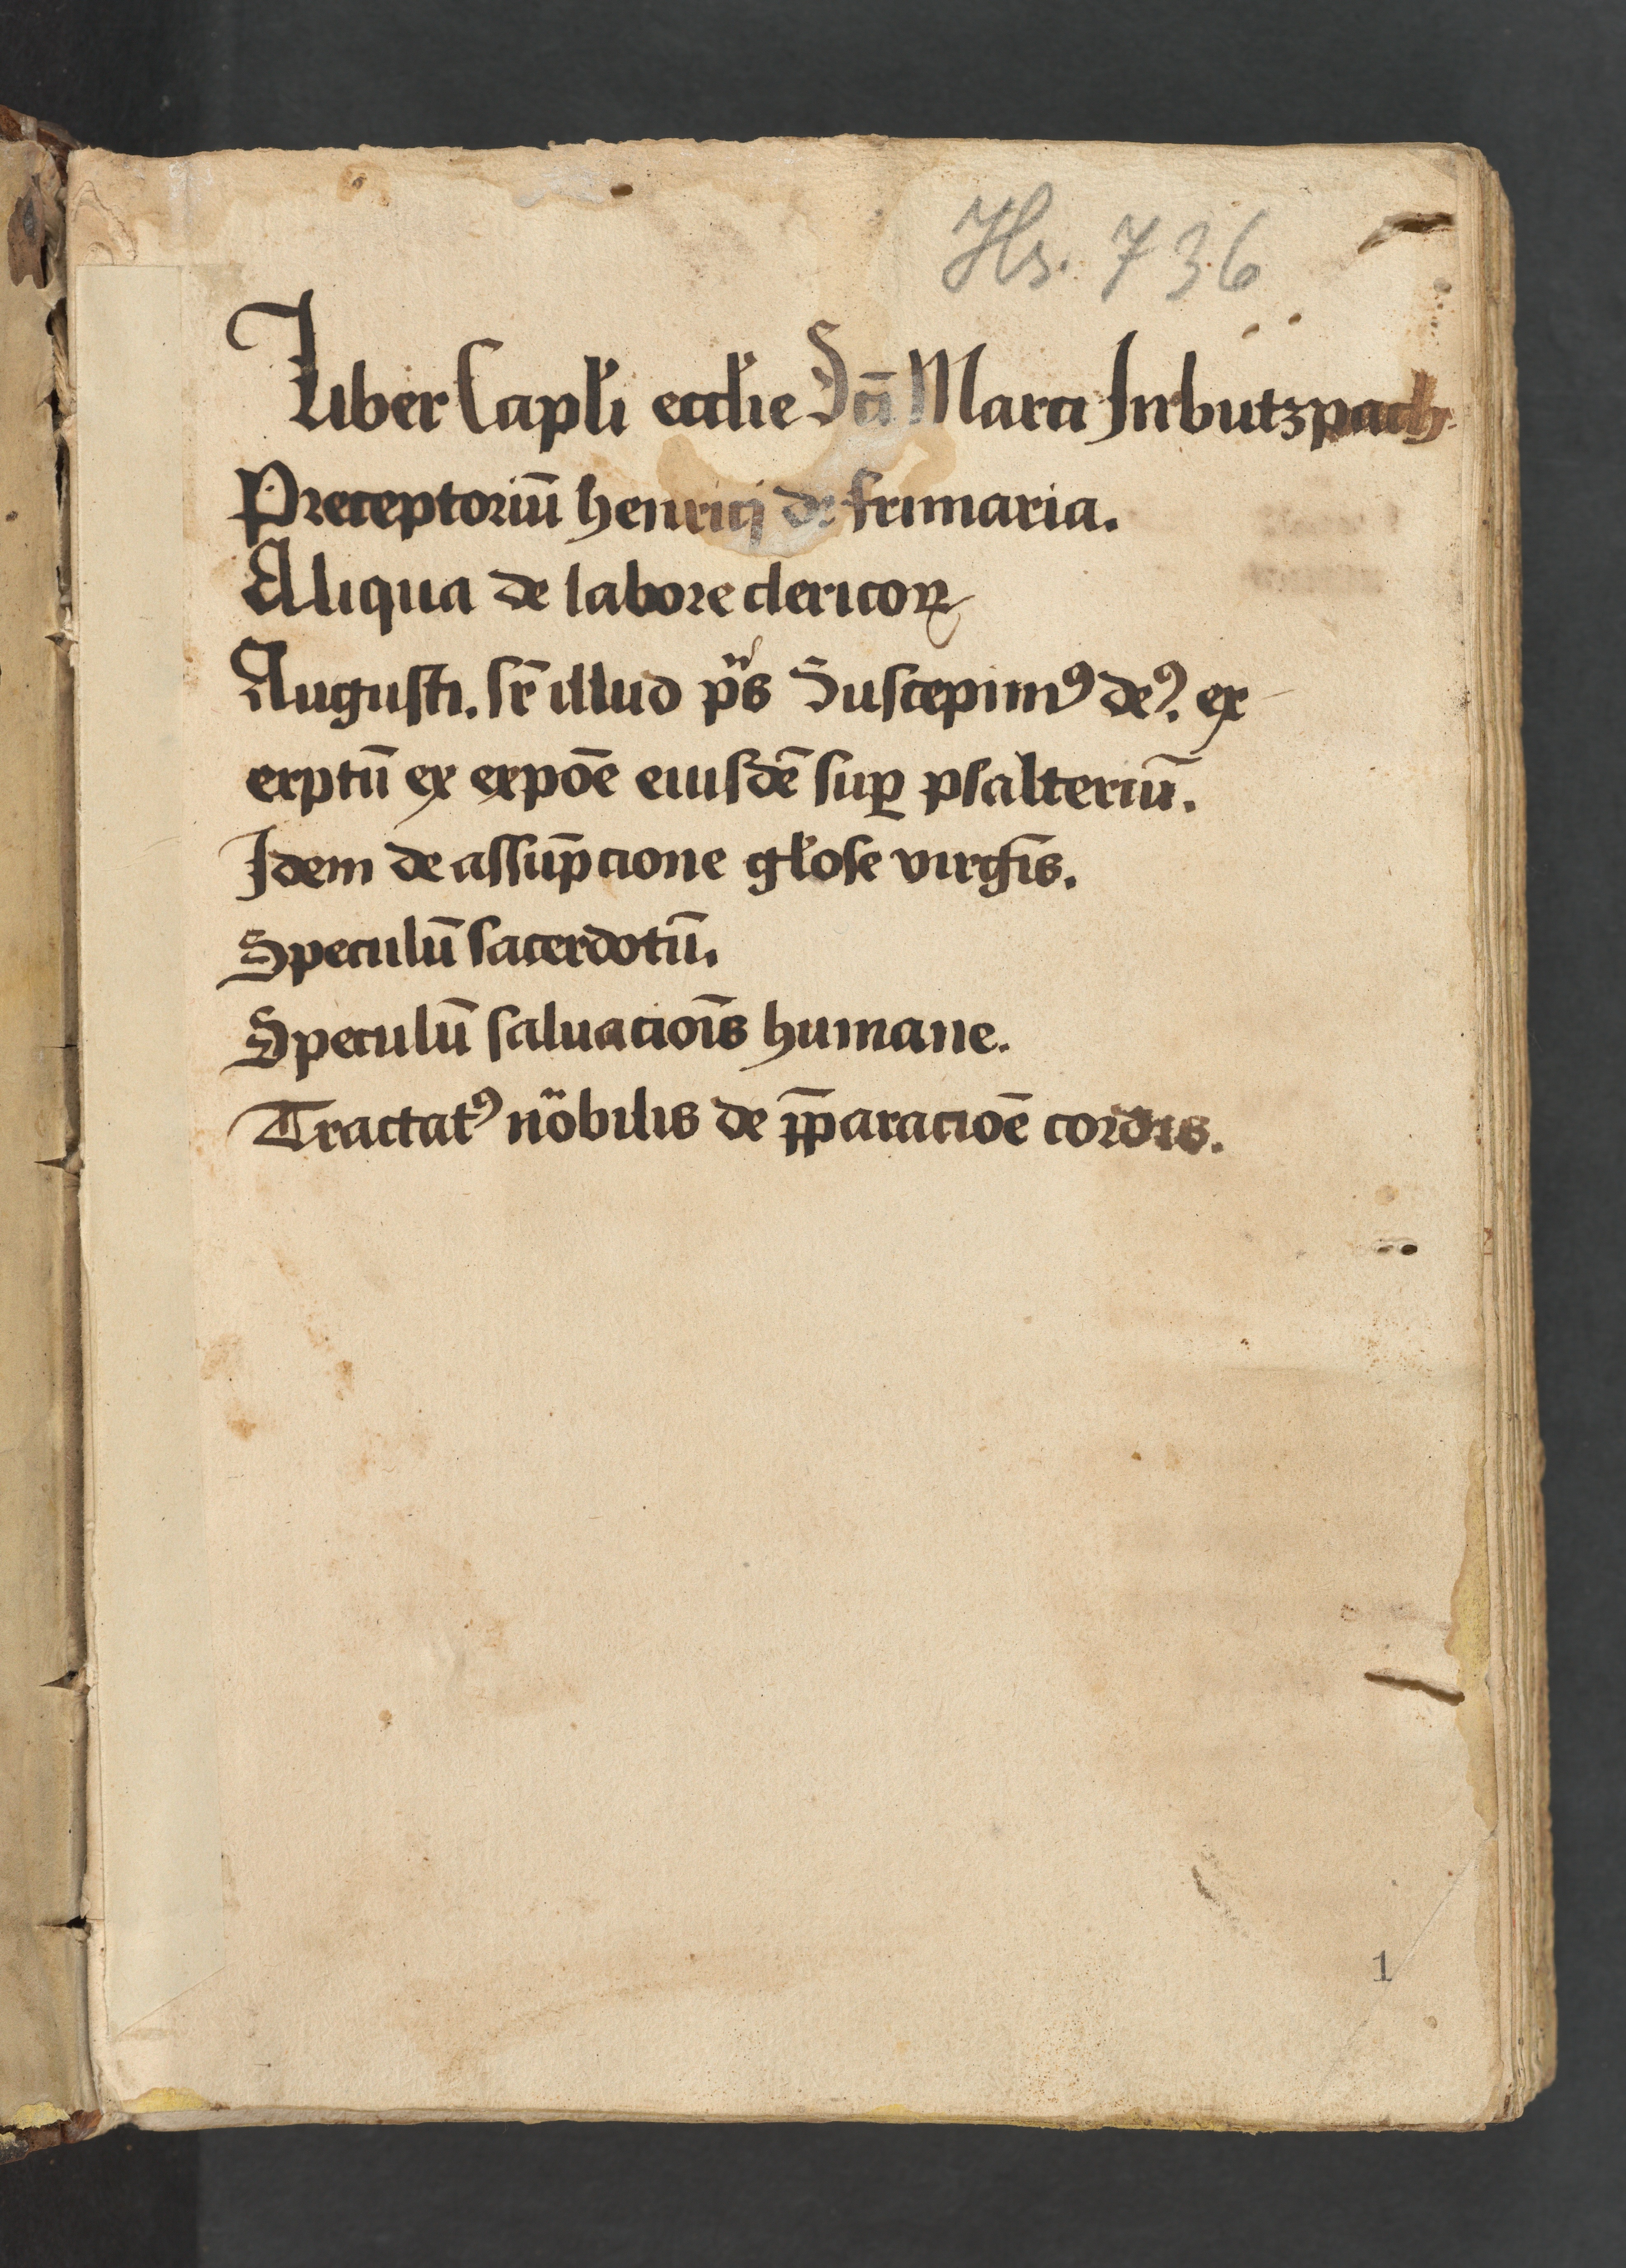 Hs. 736
Liber Capl̕i eccl̕ie Sc̄i Marci In butzpach
Preceptoriū henrici de frimaria.
Aliqua de labore clericoꝝ
Augusti. sr̄ illud pͥs Suscepimꝰ deꝰ. ex
cerptū ex expoē eiusdē suꝑ psalteriū.
Idem de assūpcione gl̕ose virgīs.
Speculū sacerdotū.
Speculū saluacioīs humane.
Tractatꝰ nobilis de p̄paracioē cordis.
1